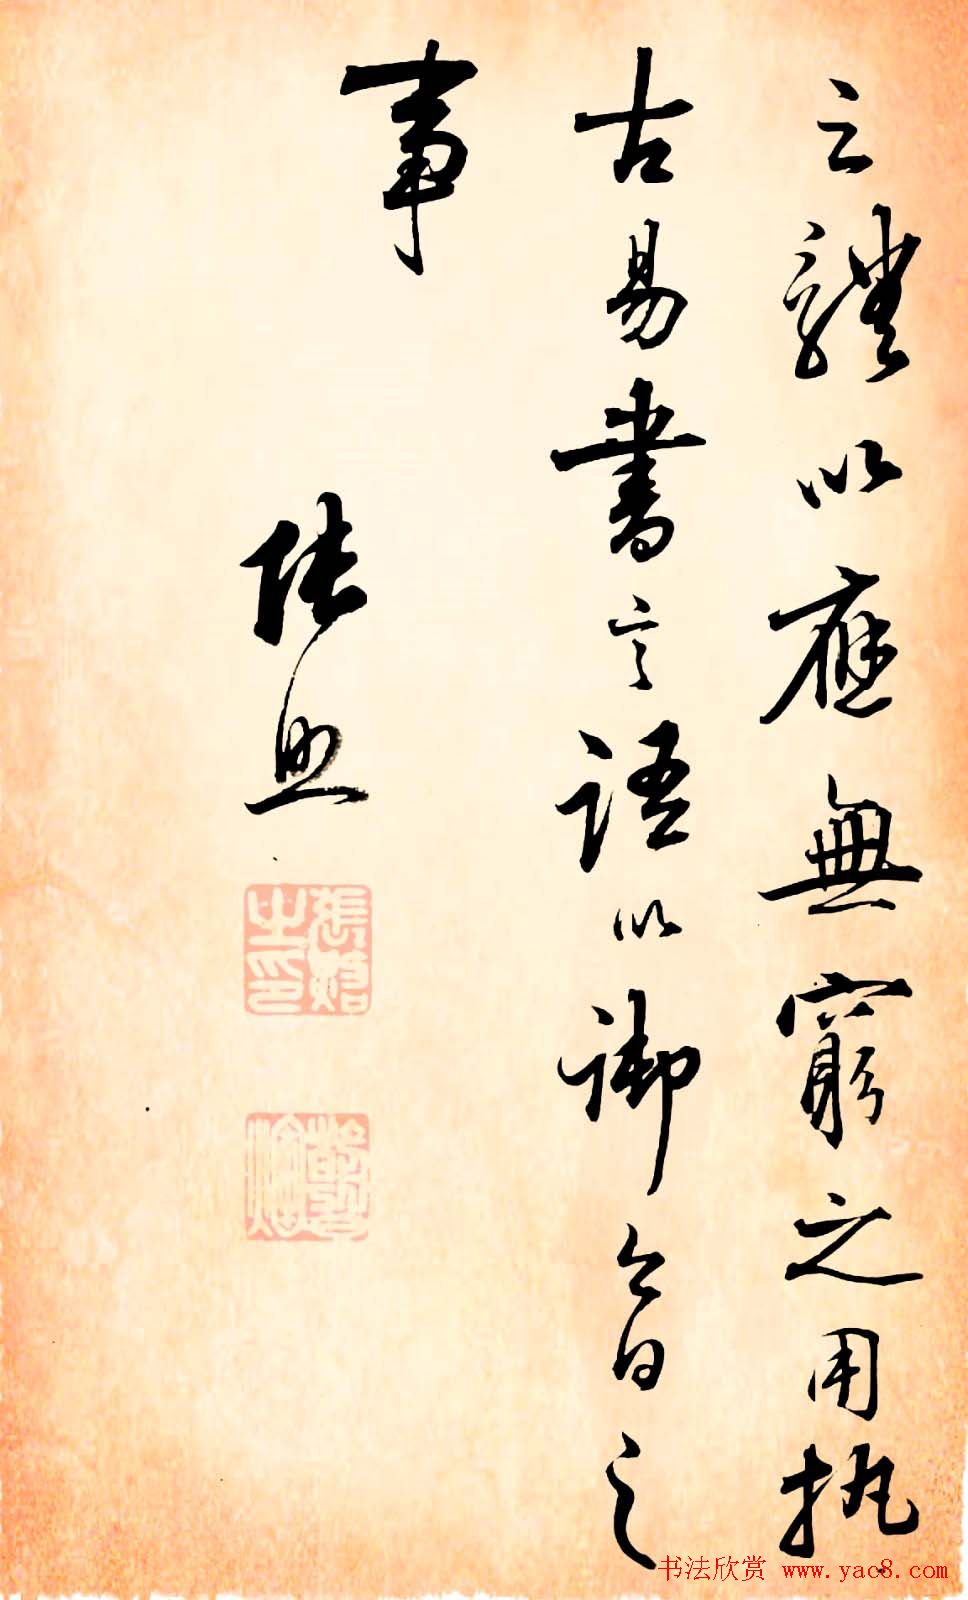 之體以應無窮之用執
古易書言語以御今日之
事
張照
張照之印
书法欣赏 www.yac8.com